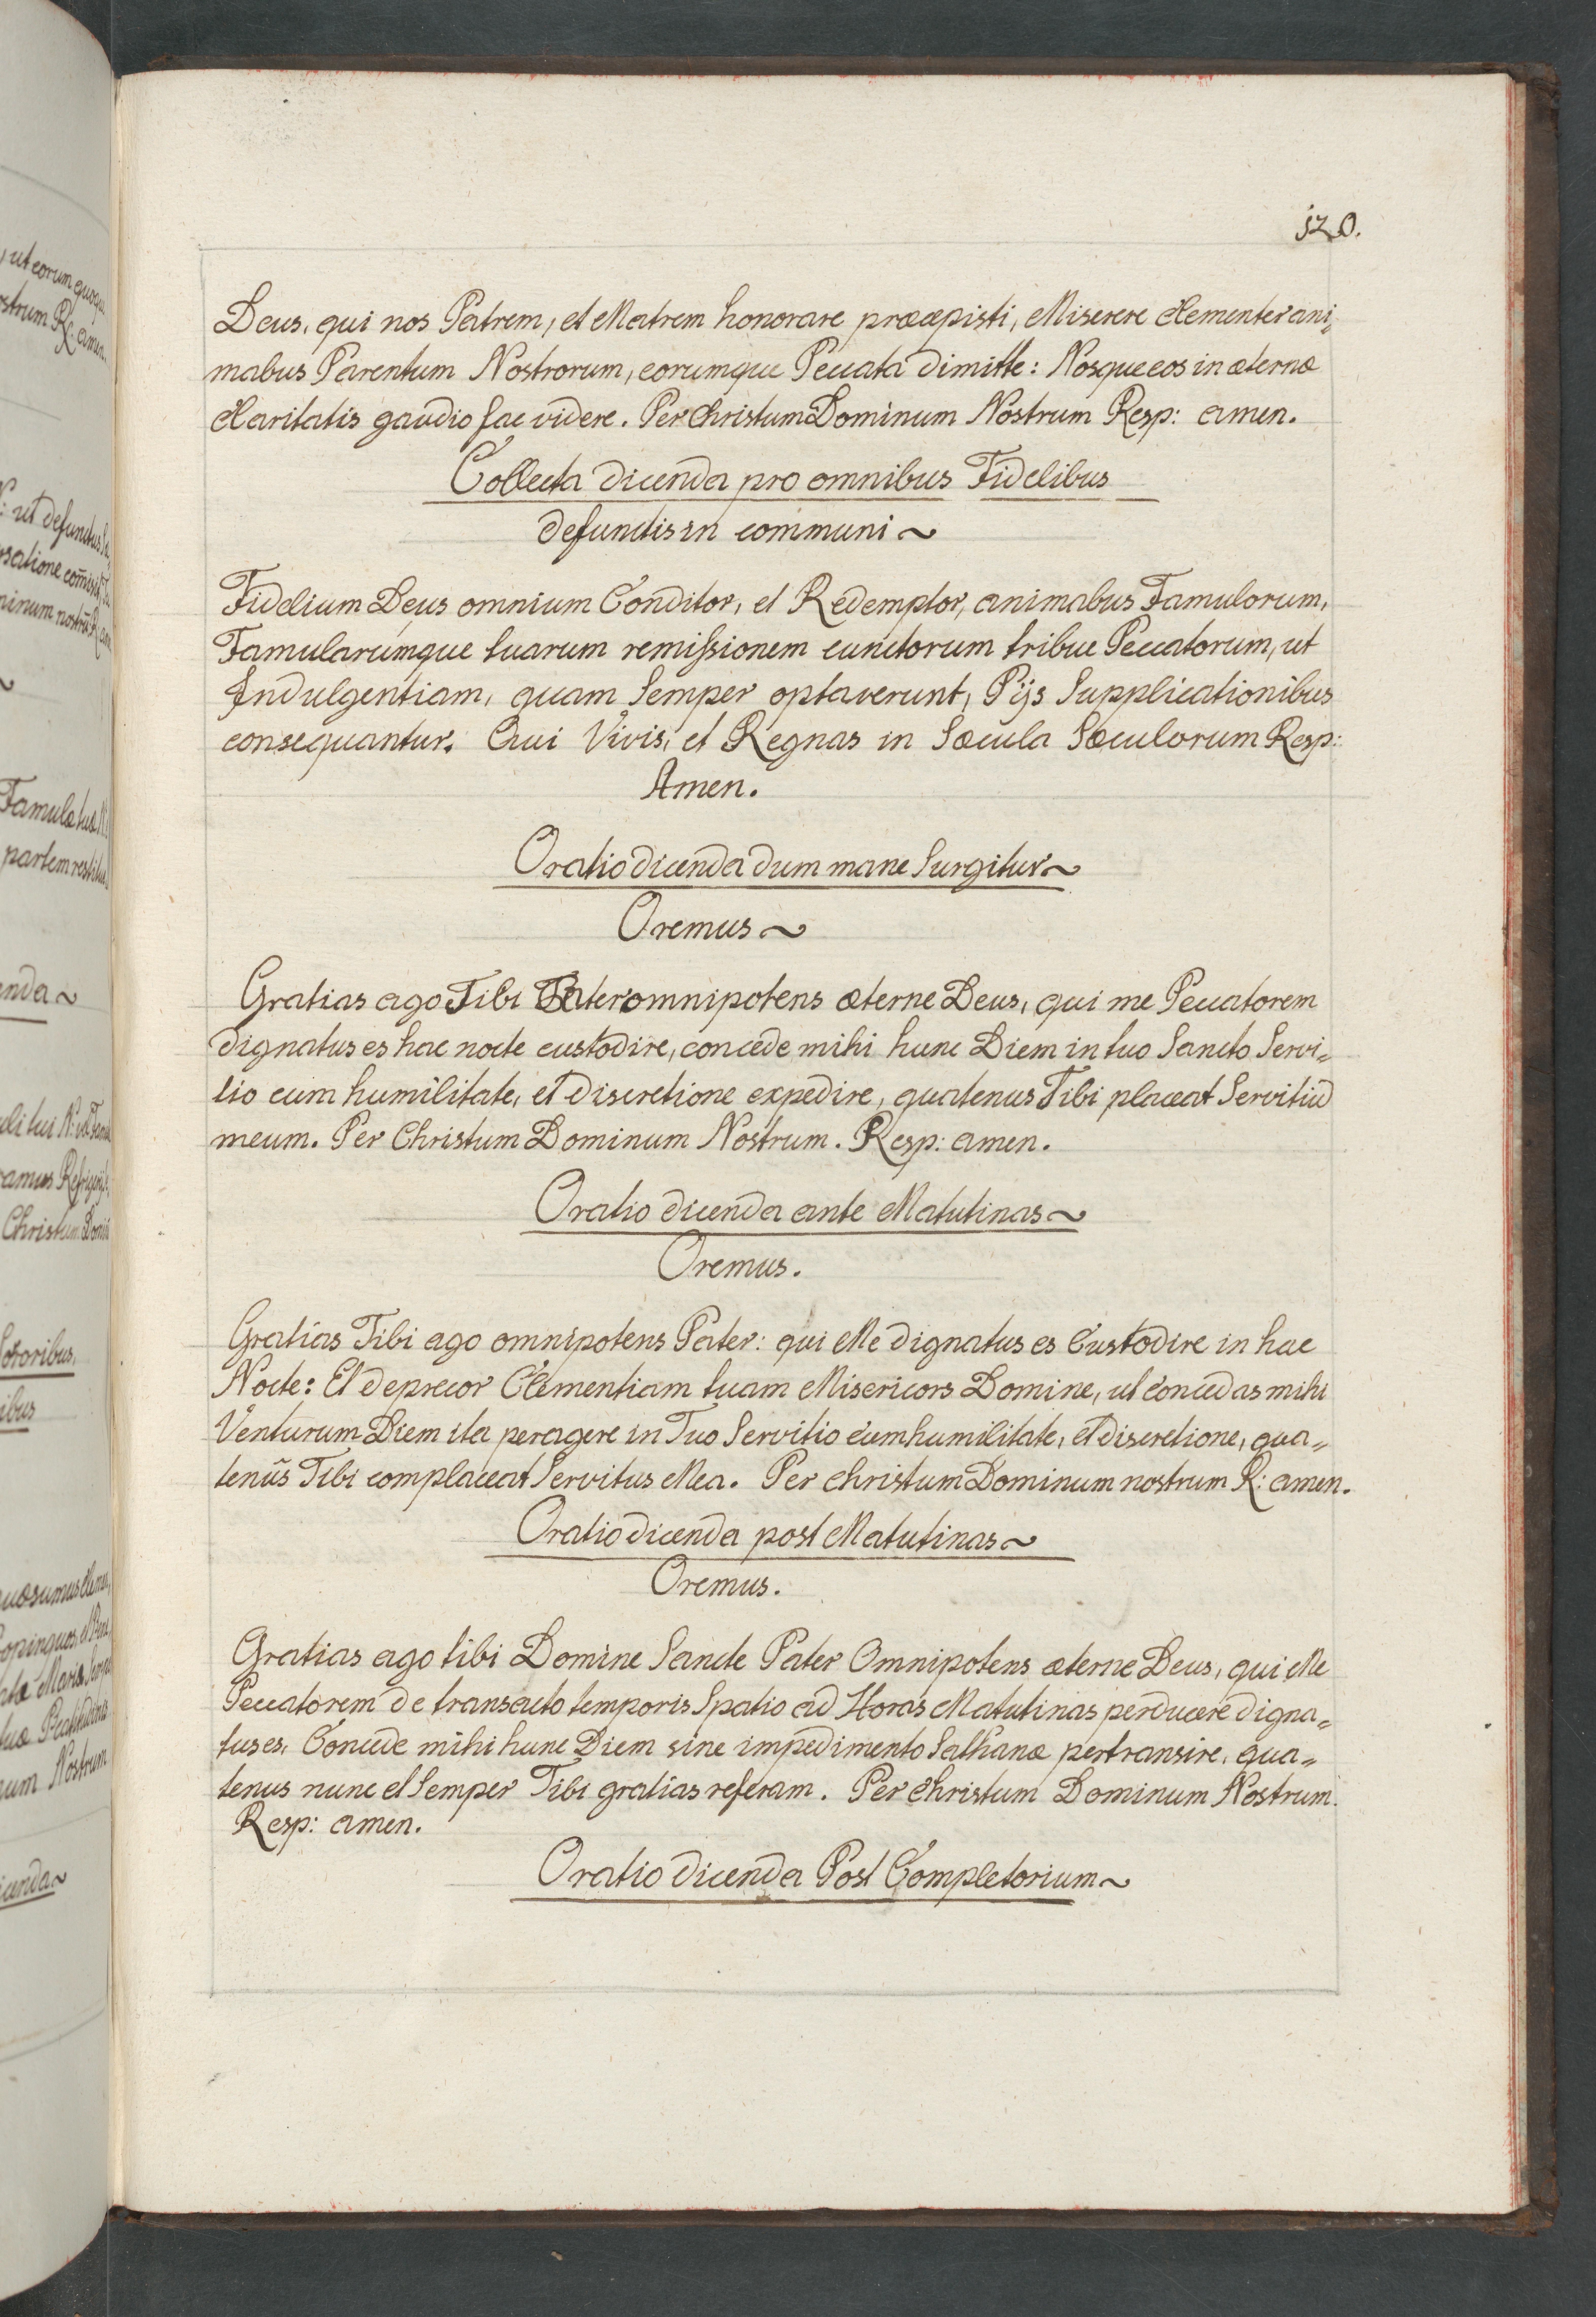 , ut eorum quoque
ostrum R: amen.
N: ut defunctus
rsatione com̄isit
minum nostrū R
Famulæ tuæ N:
partem restitu
enda~
uli tui N: ut
ramus Refrigerij
Christum Domi
Sororibus.
ibus
quæsumus
opinquos, et
atæ Maria semp
tuæ Beatitudinis
num Nostrum
icenda~
120.
Deus, qui nos Patrem, et Matrem honorare præcepisti, Miserere Clementer ani,,
mabus Parentum Nostrorum, eorumque Peccata dimitte: Nosque eos in æternæ
Claritatis gaudio fac videre. Per Christum Dominum Nostrum Resp: amen.
Collecta dicenda pro omnibus Fidelibus
defunctis in communi ~
Fidelium Deus omnium Conditor, et Redemptor, animabus Famulorum,
Famularumque tuarum remissionem cunctorum tribue Peccatorum, ut
Indulgentiam, quam Semper optaverunt, Pijs Supplicationibus
consequantur. Qui Vivis, et Regnas in Sæcula Sæculorum Resp:
Amen.
Oratio dicenda dum mane Surgitur~
Oremus~
Gratias ago Tibi Pater omnipotens æterne Deus, qui me Peccatorem
dignatus es hac nocte custodire, concede mihi hunc Diem in tuo Sancto Servi,,
tio cum humilitate, et discretione expedire, quatenus Tibi placeat Servitiū
meum. Per Christum Dominum Nostrum. Resp: amen.
Oratio dicenda ante Matutinas~
Oremus.
Gratias Tibi ago omnipotens Pater: qui Me dignatus es Custodire in hac
Nocte: Et deprecor Clementiam tuam Misericors Domine, ut concedas mihi
Venturum Diem ita peragere in Tuo Servitio cum humilitate, et discretione, qua,,
tenus Tibi complaceat Servitus Mea. Per Christum Dominum nostrum R: amen.
Oratio dicenda post Matutinas~
Oremus.
Gratias ago tibi Domine Sancte Pater Omnipotens æterne Deus, qui Me
Peccatorem de transacto temporis Spatio ad Horas Matutinas perducere digna,,
tus es, Concede mihi hunc Diem sine impedimento Sathanæ pertransire, qua,,
tenus nunc et Semper Tibi gratias referam. Per Christum Dominum Nostrum.
Resp: amen.
Oratio dicenda Post Completorium~